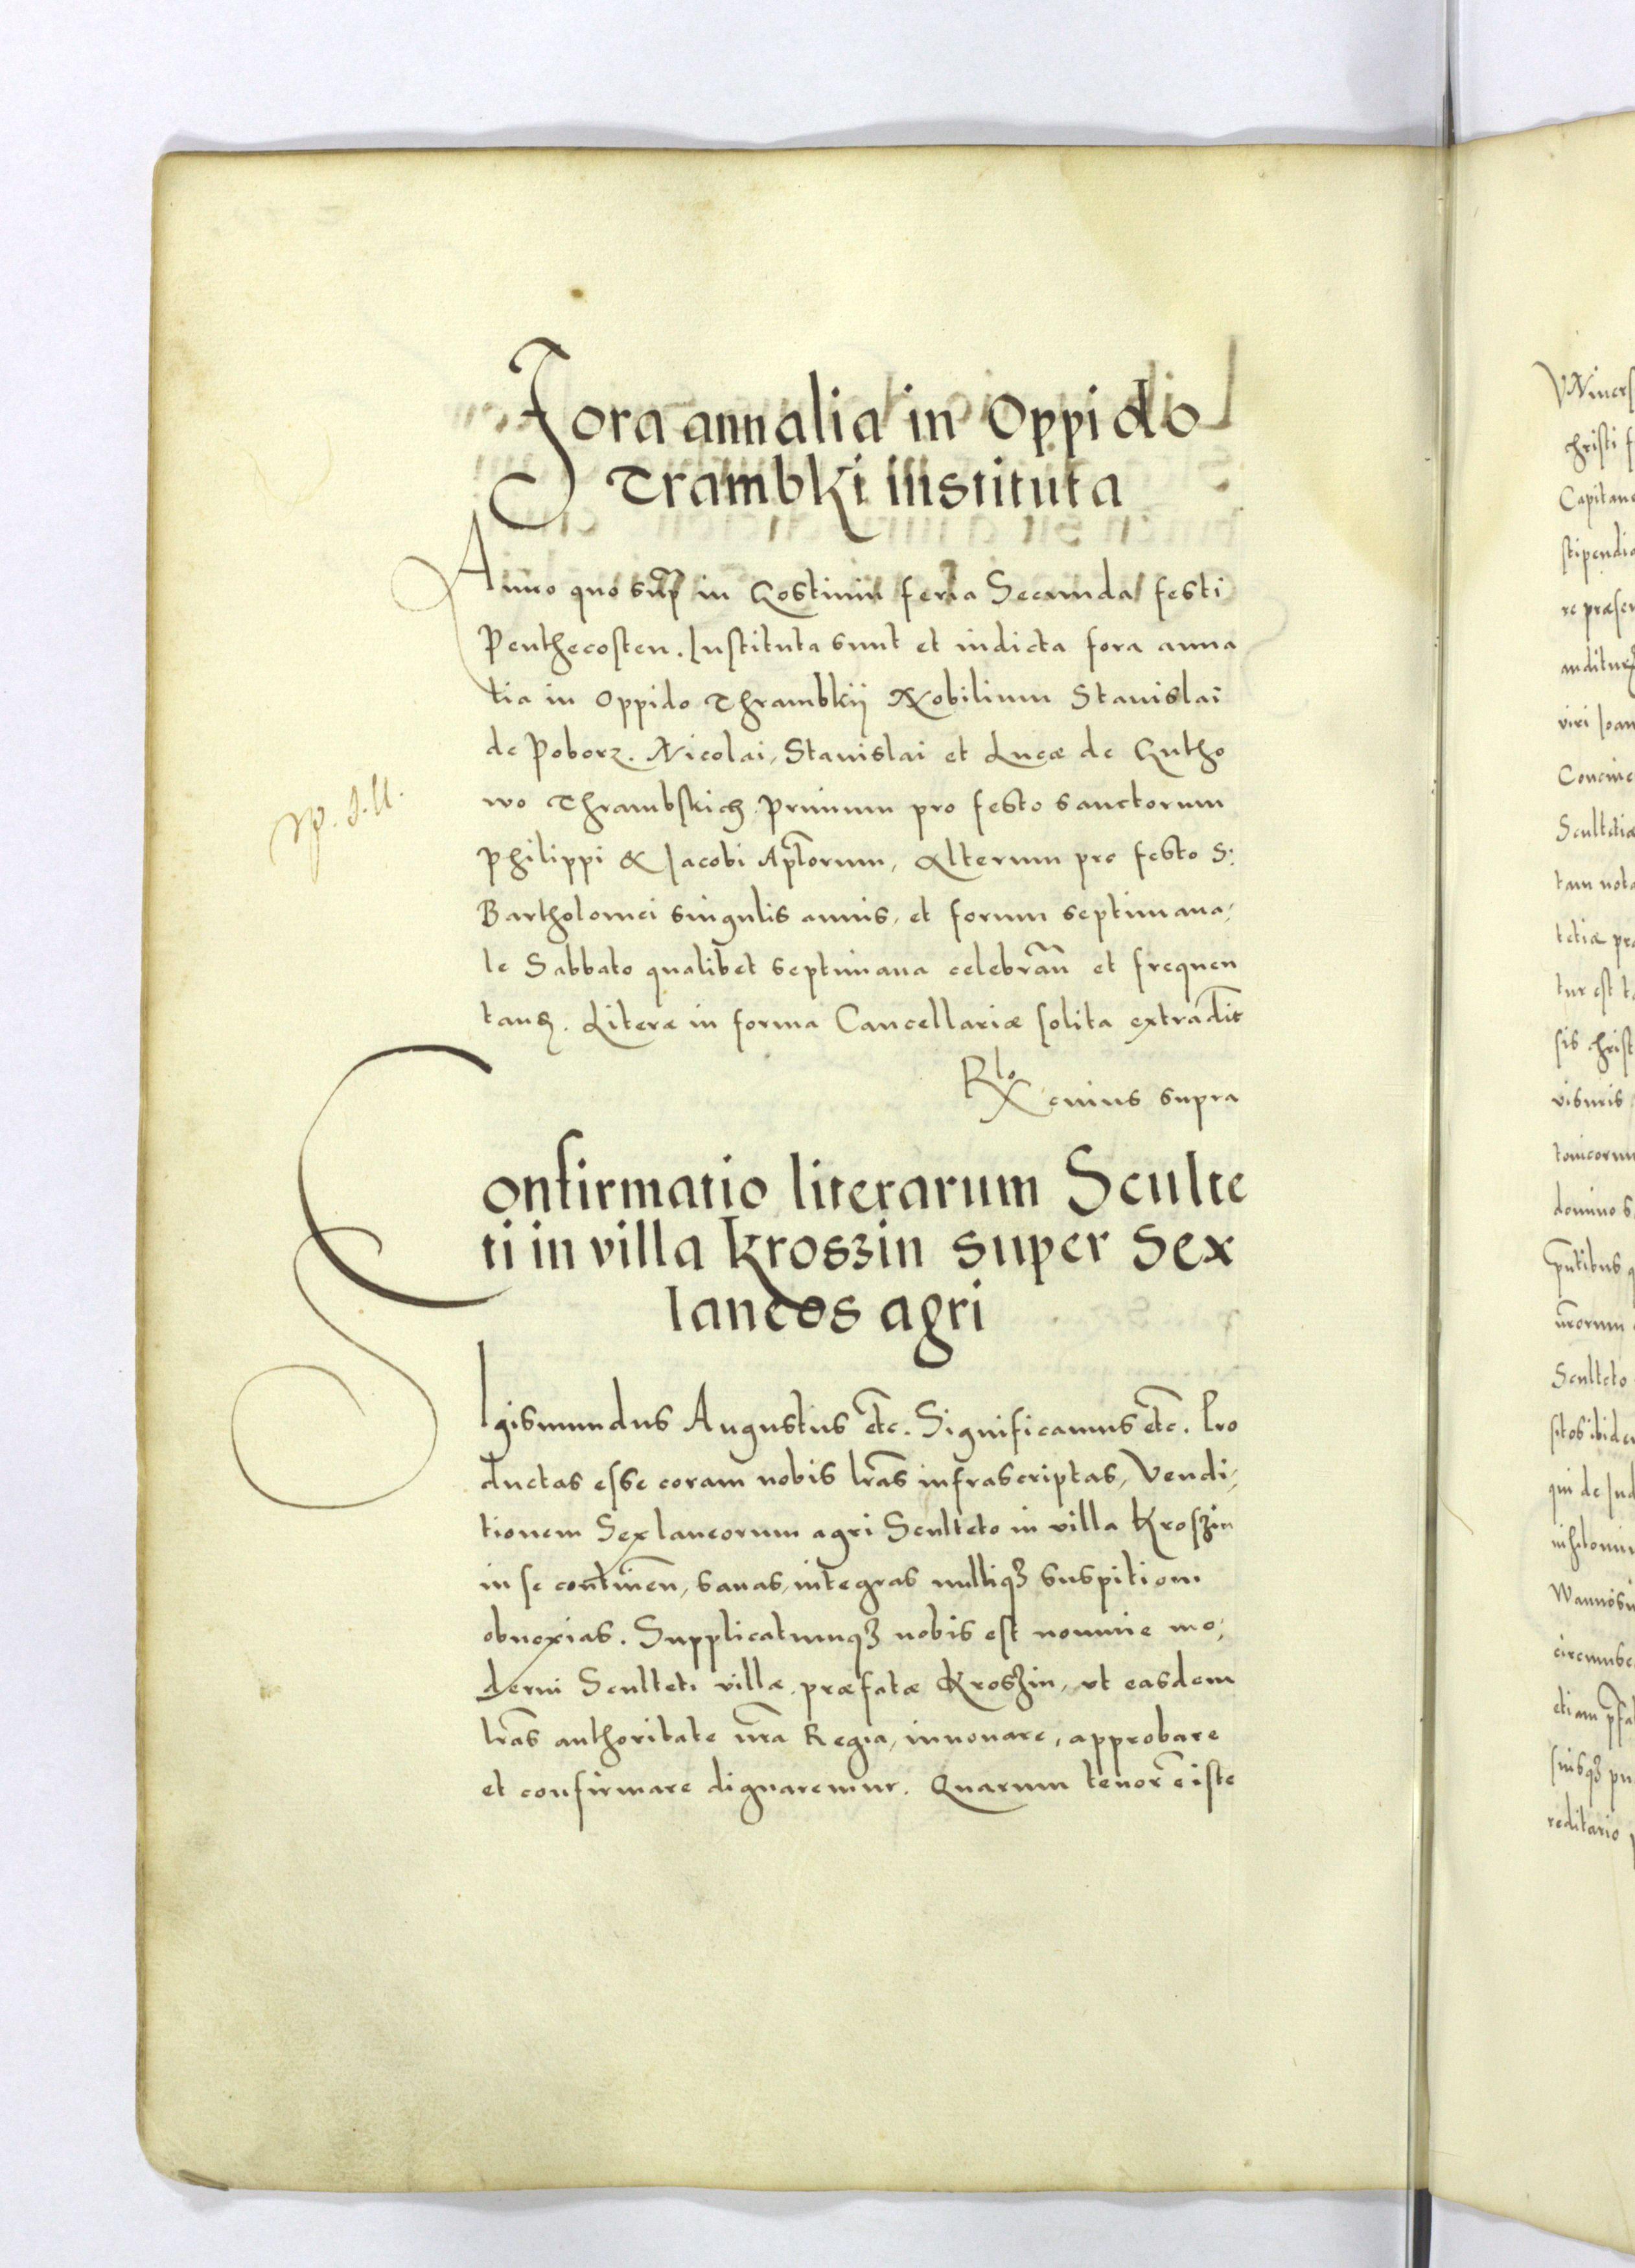 Fora annalia in Oppido
Trambki instituta
Anno quo sup̃ in Gostinin feria Secunda festi
Penthecosten. Instituta sunt et indicta fora anna
lia in Oppido Thrambkij Nobilium Stanislai
de Poborz. Nicolai, Stanislai et Lucæ de Gutho
wo Thrambskich. Primum pro festo sanctorum
Philippi & Jacobi Ap̃lorum, Alterum pro festo S:
Bartholomei singulis annis, et forum septimana,
le Sabbato qualibet septimana celebrañ et frequen
tanđ. Literæ in forma Cancellariæ solita extradit̃
Rlo cuius supra
Confirmatio literarum Sculte
ti in villa Kroszin super Sex
laneos agri
SIgismundus Augustus etc̃. Significamus etc̃. Pro
ductas esse coram nobis lr̃as infrascriptas, Vendi,
tionem Sex laneorum agri Sculteto in villa Kroszin
in se continen̄, sanas, integras nulliqȝ suspitioni
obnoxias. Supplicatumqȝ nobis est nomine mo,
derni Sculteti villæ præfatæ Kroszin, vt easdem
lr̃as authoritate nr̃a Regia, innouare, approbare
et confirmare dignaremur. Quarum tenor ẽ iste
Vniuers
christi f
Capitane
stipendia
re præsen
viri Ioan
Scultetiæ
tam nota
tetiæ pra
tur est t
sis christ
tonicorum
domino s
nr̃orum
Sculteto
sitos ibidem
qui de Jud
circumsc
reditario